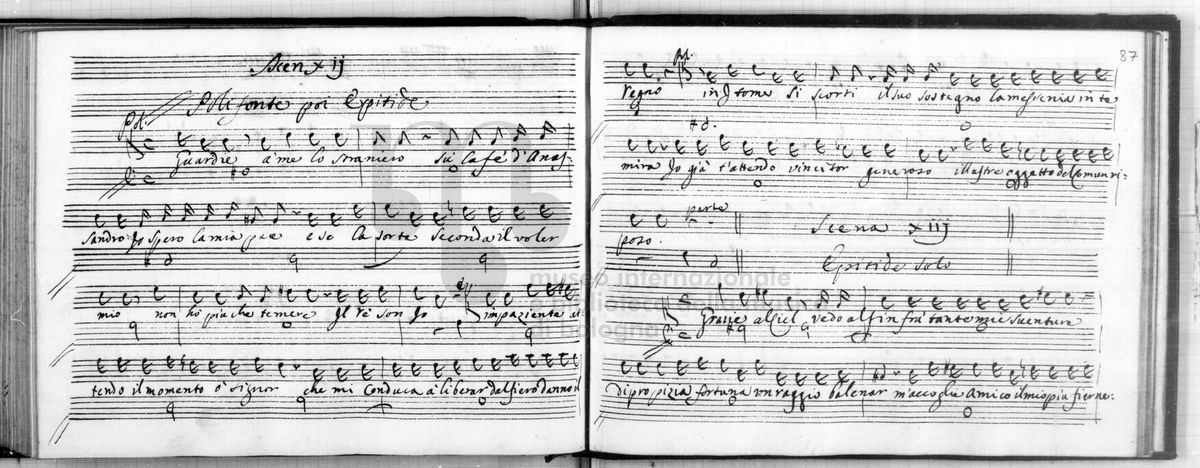 Scen x ij
Polifonte poi Epitide
Pol.
Guardie à me lo straniero su la fè d'Anas:
sandro Io spero la mia pace e se la sorte seconda il voler
mio non hò più che temere Il Rè son Io impaziente at
tendo il momento ò Signor che mi conduca à liberar dal fiero danno il
Pol.
Regno in te si scorti il suo sostegno la messenia in te
mira Io già t'attendo vincitor generoso illustre oggetto del comun ri:
parte
poso.
Scena xiij
Epitide solo
Grazie al Ciel vedo alfin frà tante mie sventure
di propizia fortuna un raggio balenar m'accoglie amico il mio più fier ne:
87
museo internazionale
e biblioteca della musica
di bologna